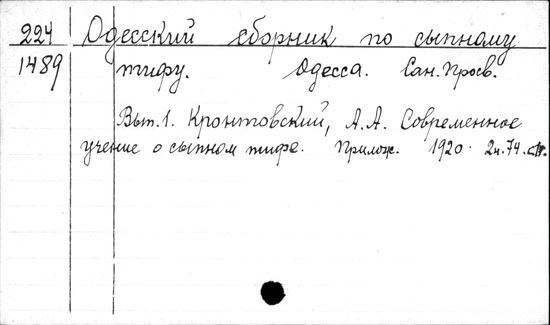 224 Одесский сборник по сыпному
1489 тифу. Одесса. Сан. Просв.
Вып. 1. Кронтовский, А.А. Современное
учение о сыпном тифе. Прилож. 1920. 74 стр.